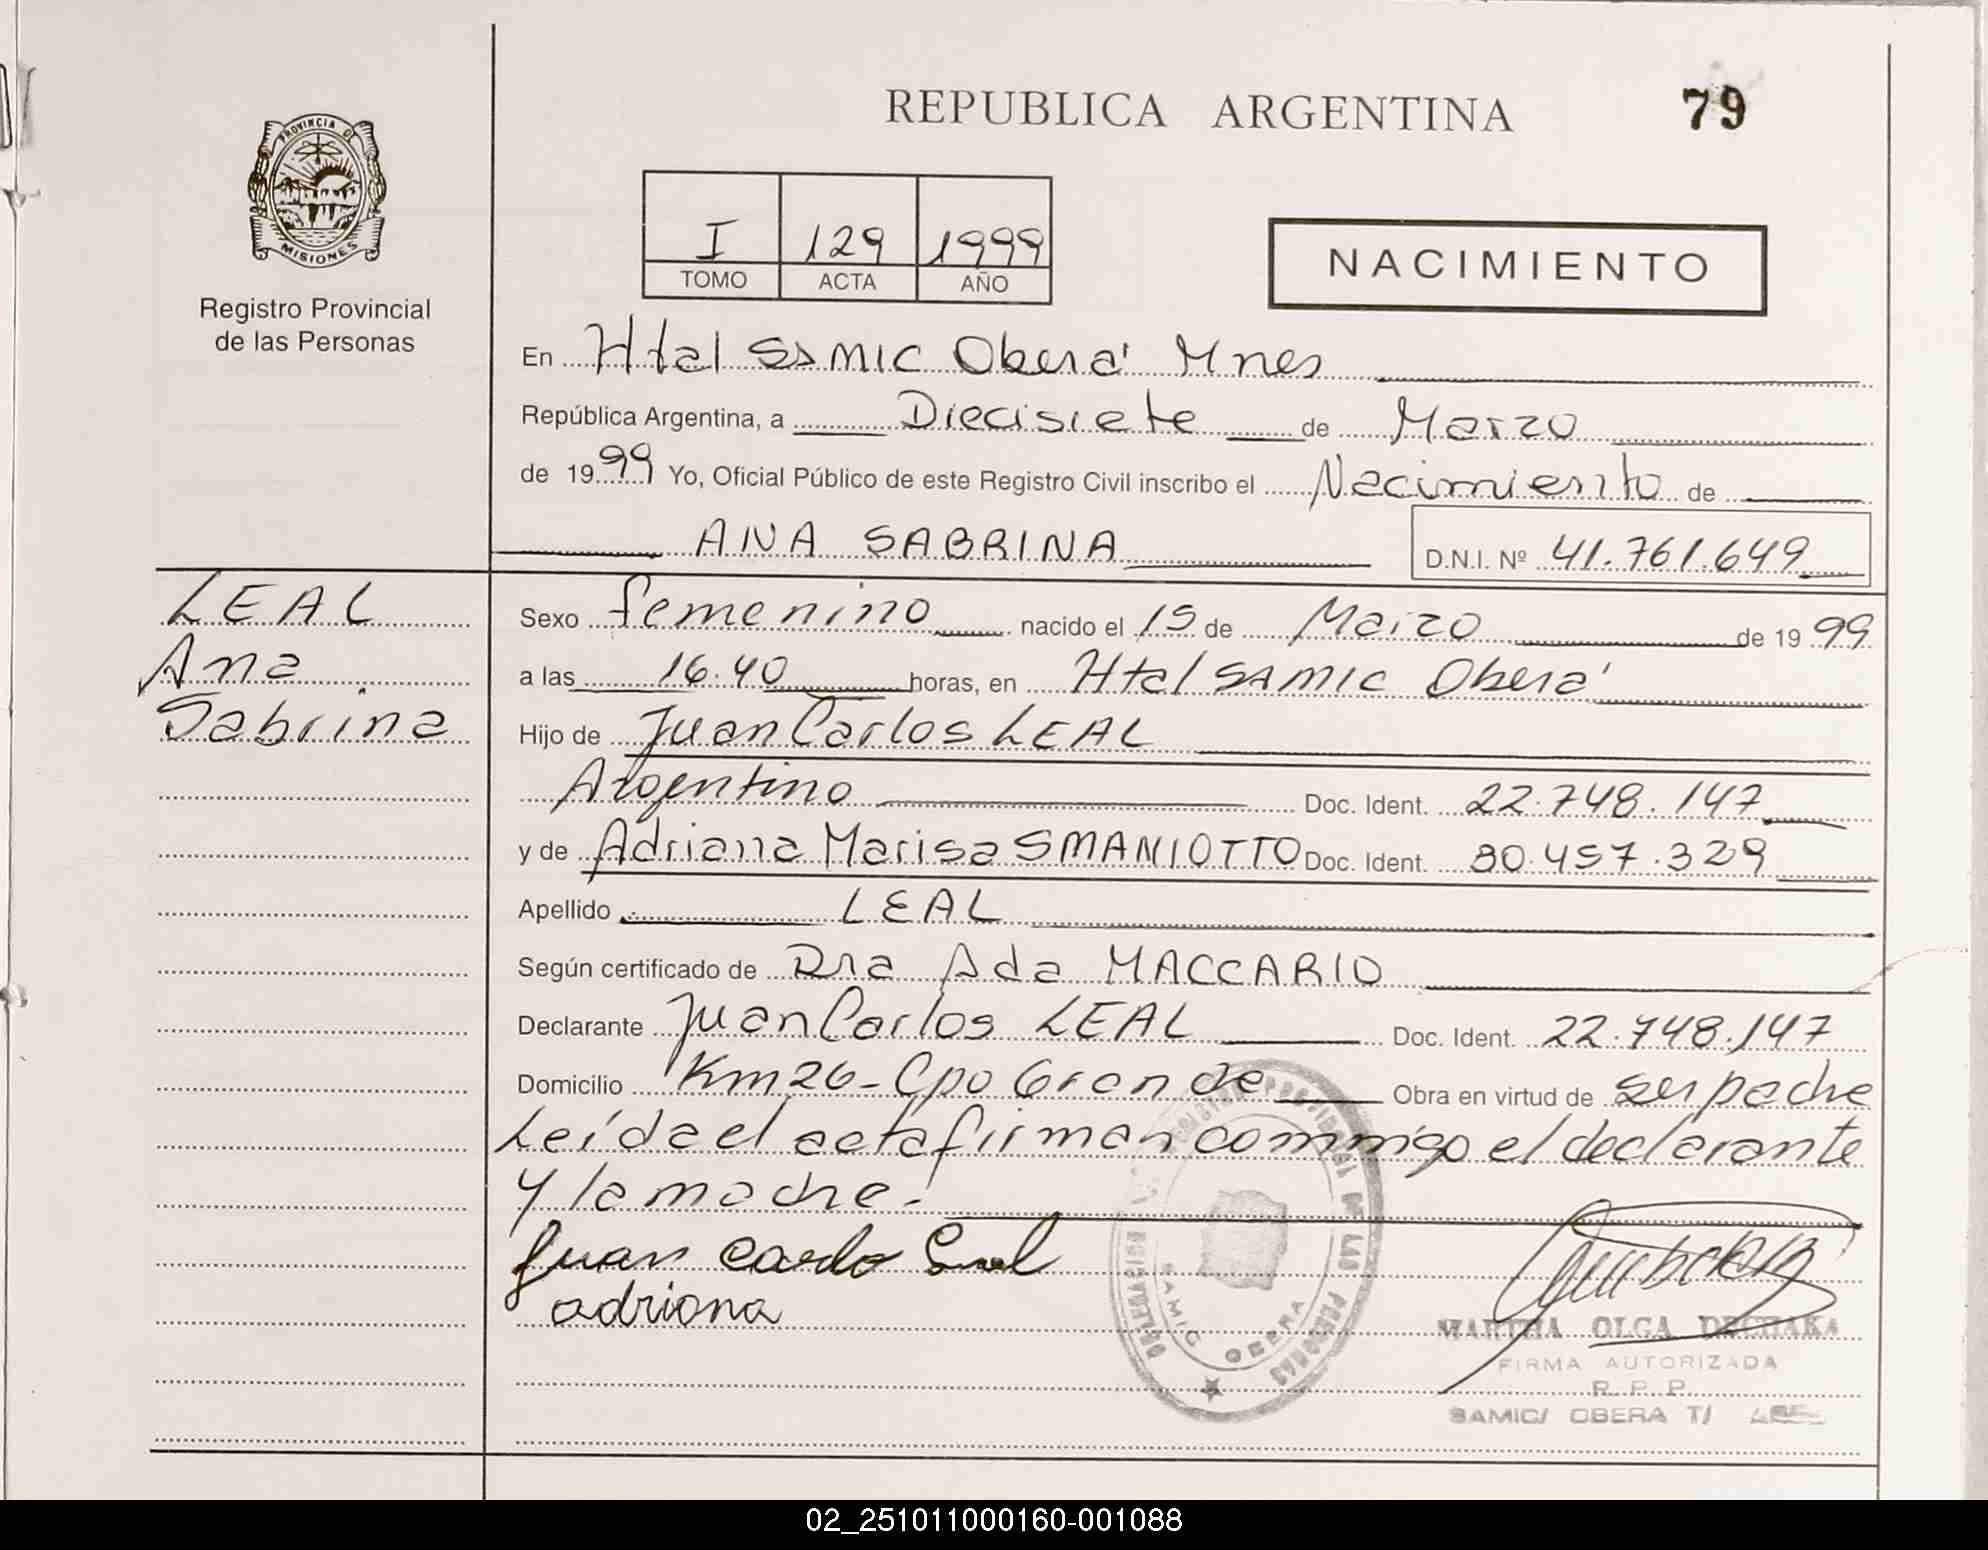 REPUBLICA ARGENTINA
79
PROVINCIA DE
MISIONES
Registro Provincial
de las Personas
I 129 1999
TOMO ACTA AÑO
NACIMIENTO
En Htal SAMIC Oberá Mnes
República Argentina, a Diecisiete de Marzo
de 1999 Yo, Oficial Público de este Registro Civil inscribo el Nacimiento de
ANA SABRINA D.N.I. Nº 41.761.649
LEAL
Ana
Sabrina
Sexo femenino nacido el 15 de Marzo de 1999
a las 16.40 horas, en Htal SAMIC Oberá
Hijo de Juan Carlos LEAL
Argentino Doc. Ident. 22.748.147
y de Adriana Marisa SMANIOTTO Doc. Ident. 30.457.329
Apellido LEAL
Según certificado de Dra Ada MACCARIO
Declarante Juan Carlos LEAL Doc. Ident. 22.748.147
Domicilio Km 26 - Cpo Grande Obra en virtud de ser padre
Leída el acta firman conmigo el declarante
y la madre.-
Juan Carlo Leal
adriana
REGISTRO PROVINCIAL DE LAS PERSONAS
SAMIC OBERA
MARTHA OLGA DECHAKA
FIRMA AUTORIZADA
R. P. P.
SAMIC/ OBERA T/
02_251011000160-001088